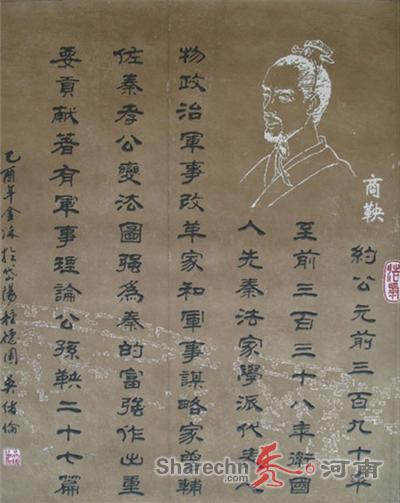 商鞅
約公元前三百九十年
至前三百三十八年衛國
人先秦法家學派代表人
物政治軍事改革家和軍事謀略家曾輔
佐秦孝公變法圖强為秦的富强作出重
要貢獻著有軍事理論公孫鞅二十七篇
乙酉年金秋於岱陽種德園 吳緒倫
Sharechn秀.河南
.com